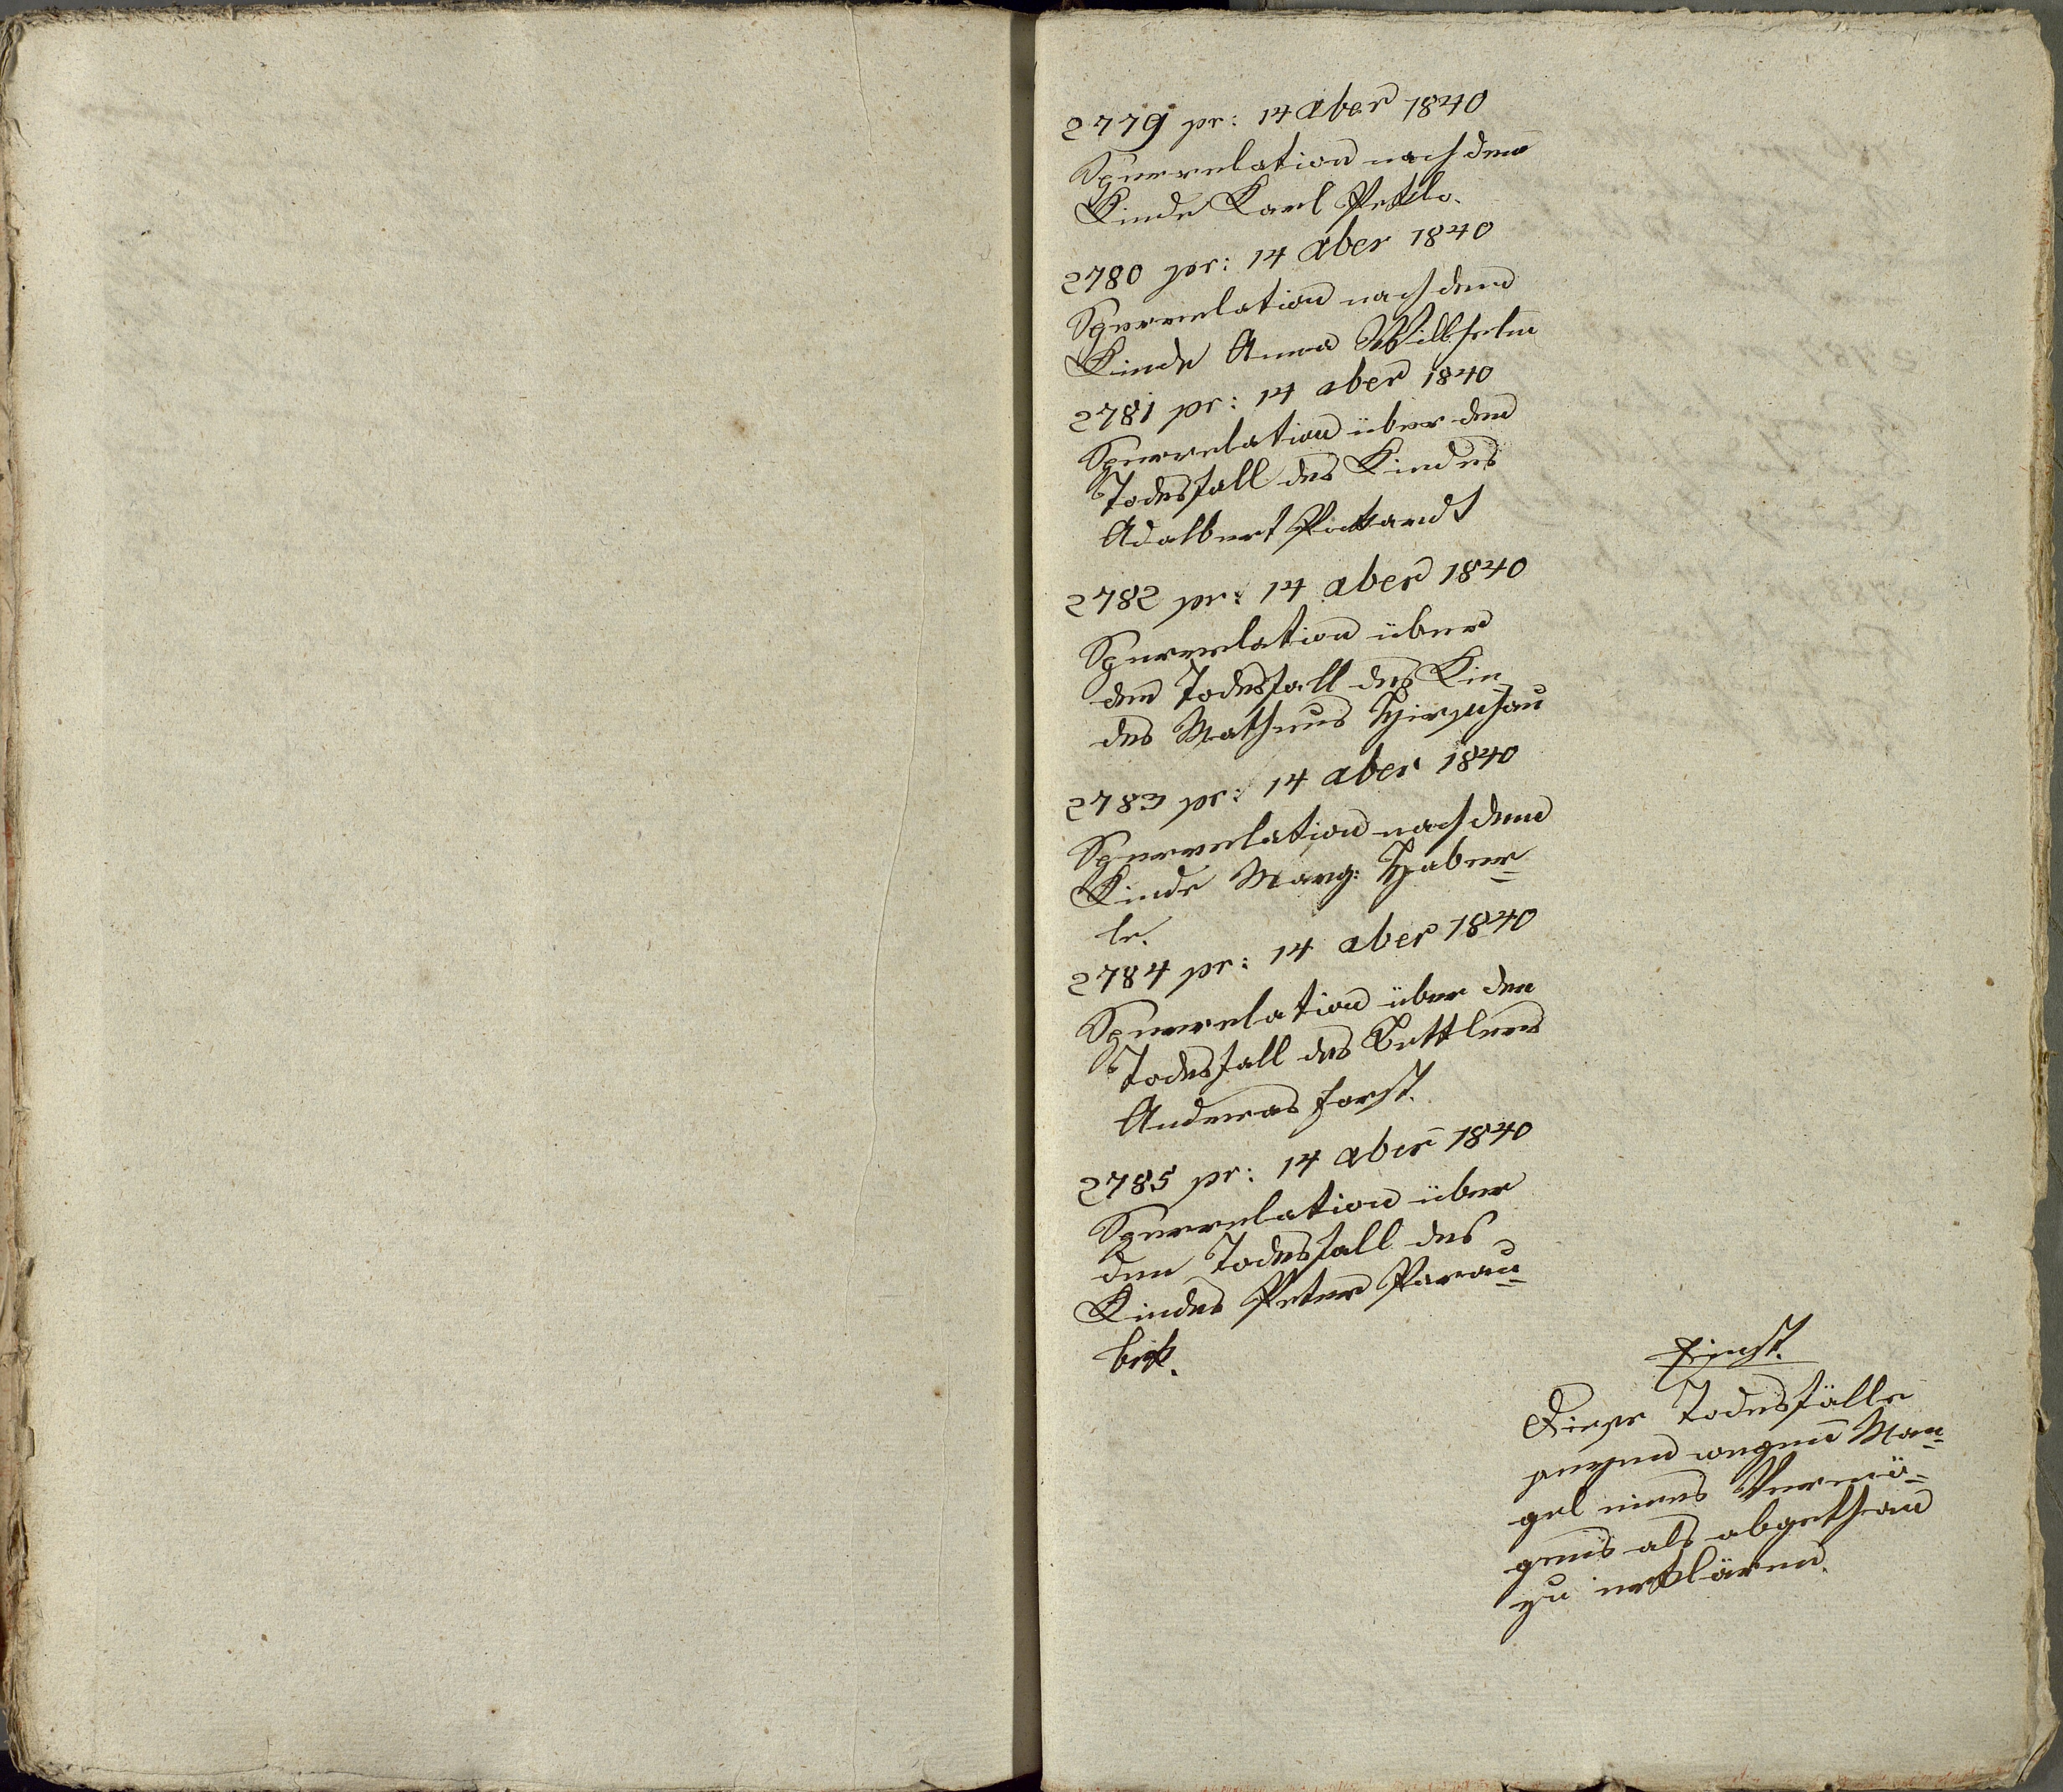 2779 pr: 14 aber 1840
Sperrrelation nach dem
Kinde Karl Petlo.
2780 pr: 14 aber 1840
Sperrrelation nach dem
Kinde Anna Willhelm
2781 pr: 14 aber 1840
Sperrrelation über den
Todesfall des Kindes
Adalbert
2782 pr: 14 aber 1840
Sperrrelation über
den Todesfall des Kin-
des Matheus Hirschau
2783 pr: 14 aber 1840
Sperrrelation nach dem
Kinde Marg: Haber=
le.
2784 pr: 14 aber 1840
Sperrrelation über den
Todesfall des Bettlers
Andreas Forst.
2785 pr: 14 aber 1840
Sperrrelation über
den Todesfall des
Kindes Peter Parau=
bek.
Fiest.
Diese Todesfälle
seyen wegen Man=
gel eines Vermö=
gens als abgethan
zu erklären.